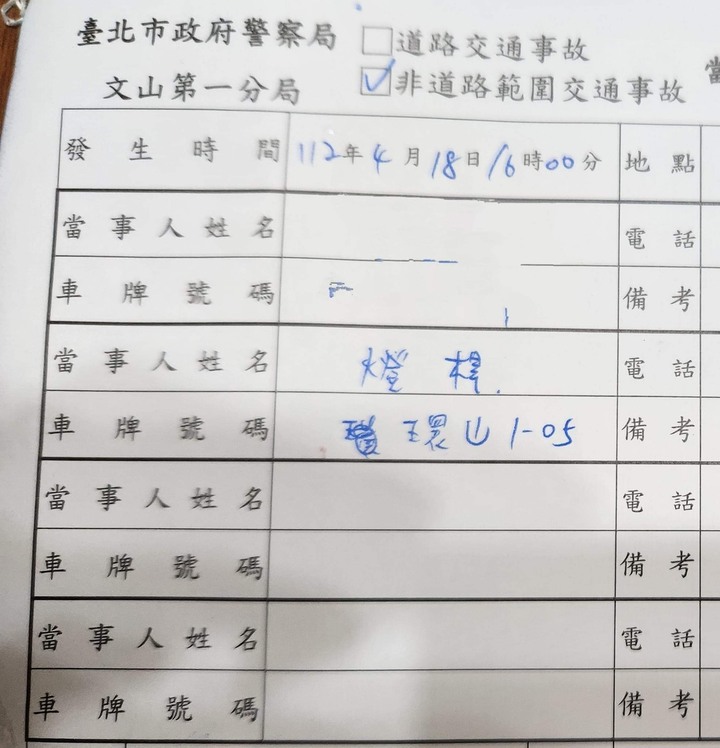 臺北市政府警察局 □道路交通事故
文山第一分局 ☑非道路範圍交通事故
當
發生時間 112年4月18日16時00分 地點
當事人姓名 電話
車牌號碼 備考
當事人姓名 燈桿 電話
車牌號碼 環山1-05 備考
當事人姓名 電話
車牌號碼 備考
當事人姓名 電話
車牌號碼 備考